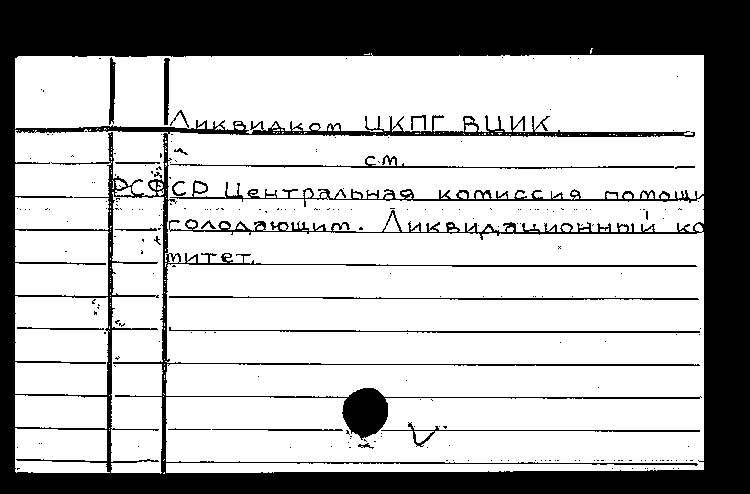 Ликвидком ЦКПГ ВЦИК
см.
РСФСР Центральная комиссия помощи
голодающим. Ликвидационный ко
митет.